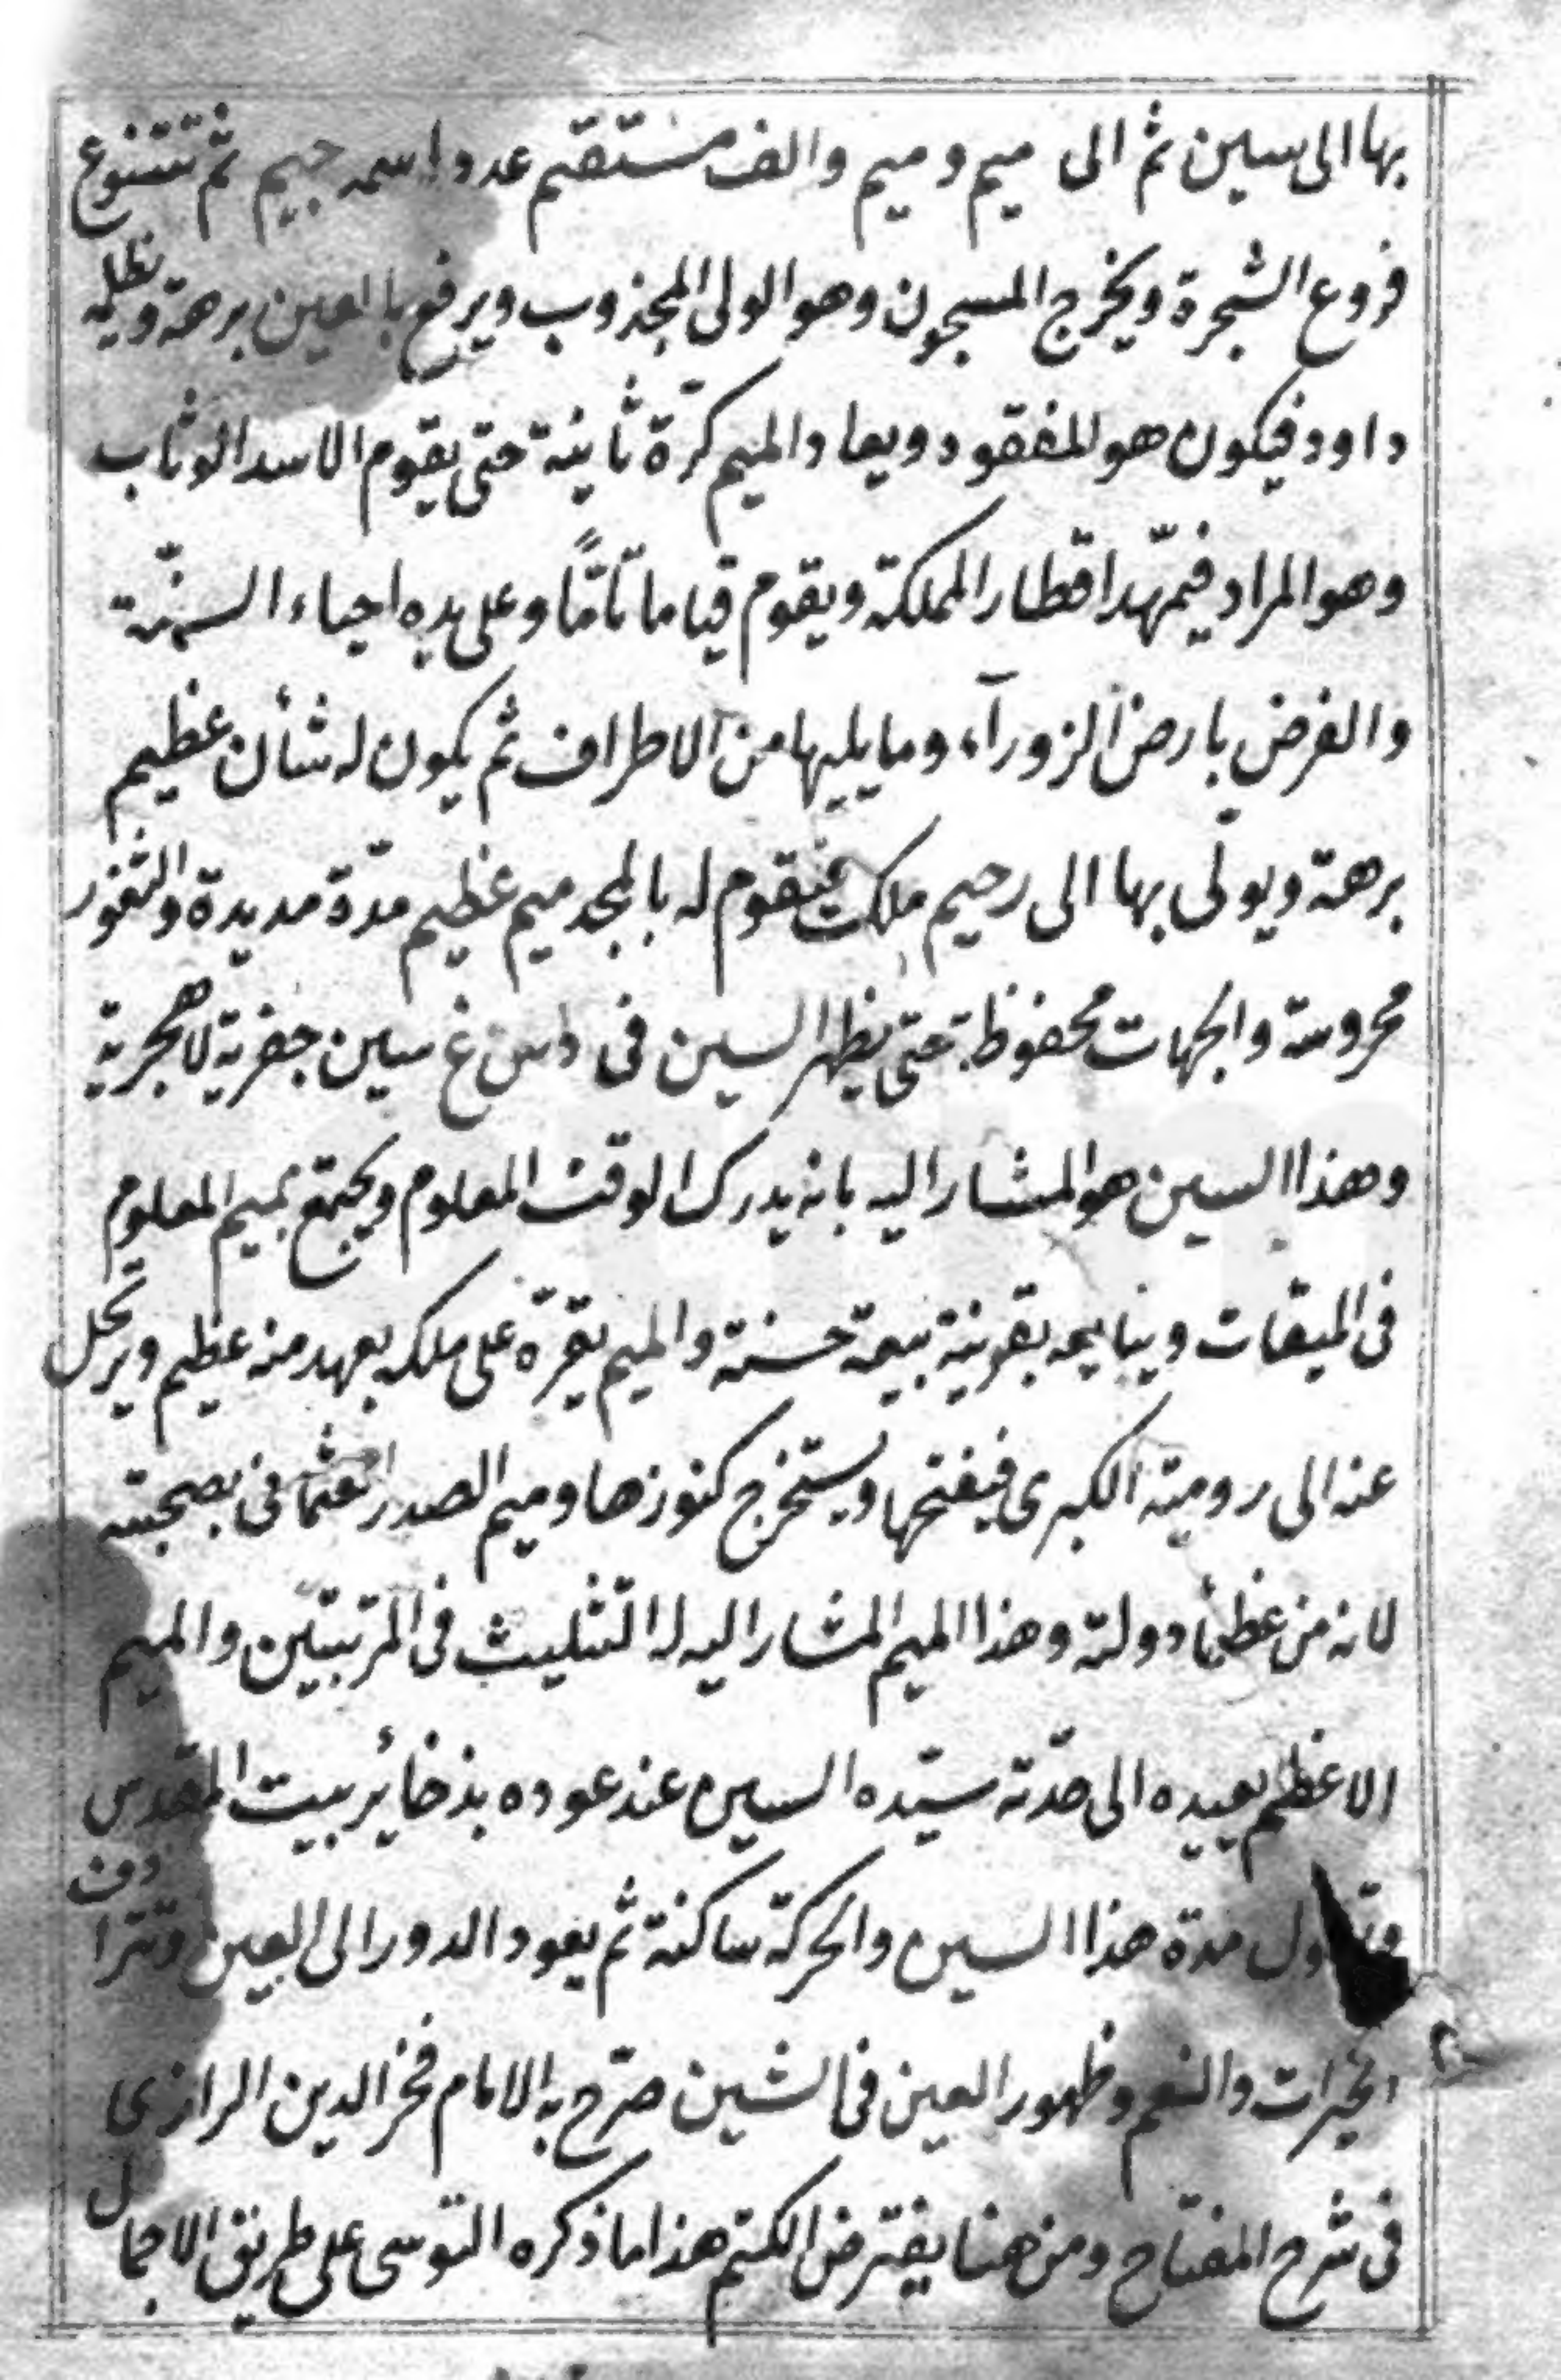 بها الى سين ثم الى ميم وميم والف مستقيم عدد اسمه جيم ثم تتنوع
فروع الشجرة ويخرج المسجون وهو الولى المجذوب ويرفع بالعين برهة ويليه
داود فيكون هو المفقود ويعاد الميم كرّة ثانية حتى يقوم الاسد الوثاب
وهو المراد فيمهّد اقطار المملكة ويقوم قياما تامّا وعلى يده احياء السنّة
والفرض بارض الزورآء وما يليها من الاطراف ثم يكون له شأن عظيم
برهة ويولّى بها الى رحيم ملك فيقوم له بالمجد ميم عظيم مدّة مديدة والثغور
محروسة والجهات محفوظة حتى يظهر السين فى غ سين جفرية لا هجرية
وهذا السين هو المشار اليه بانه يدرك الوقت المعلوم ويجتمع بميم المعلوم
فى الميقات ويبايعه بقونية بيعة حسنة والميم يقرّه على ملكه بعهد منه عظيم ويرتحل
عنه الى رومية الكبرى فيفتحها ويستخرج كنوزها وميم الصدر العثمانى بصحبته
لانه من عظمأ دولته وهذا الميم المشار اليه له التثليث فى المرتبتين والميم
الاعظم يعيده الى سيّده السين عند عوده بذخائر بيت المقدس
مدة هذا السين والحركة ساكنة ثم يعود الدور الى العين وتترادف
الخيرات والنعم وظهور العين فى الشين صرّح به الامام فخر الدين الرازى
فى شرح المفتاح ومن هنا يفترض الكتم هذا ما ذكره التوسى على طريق الاجمال